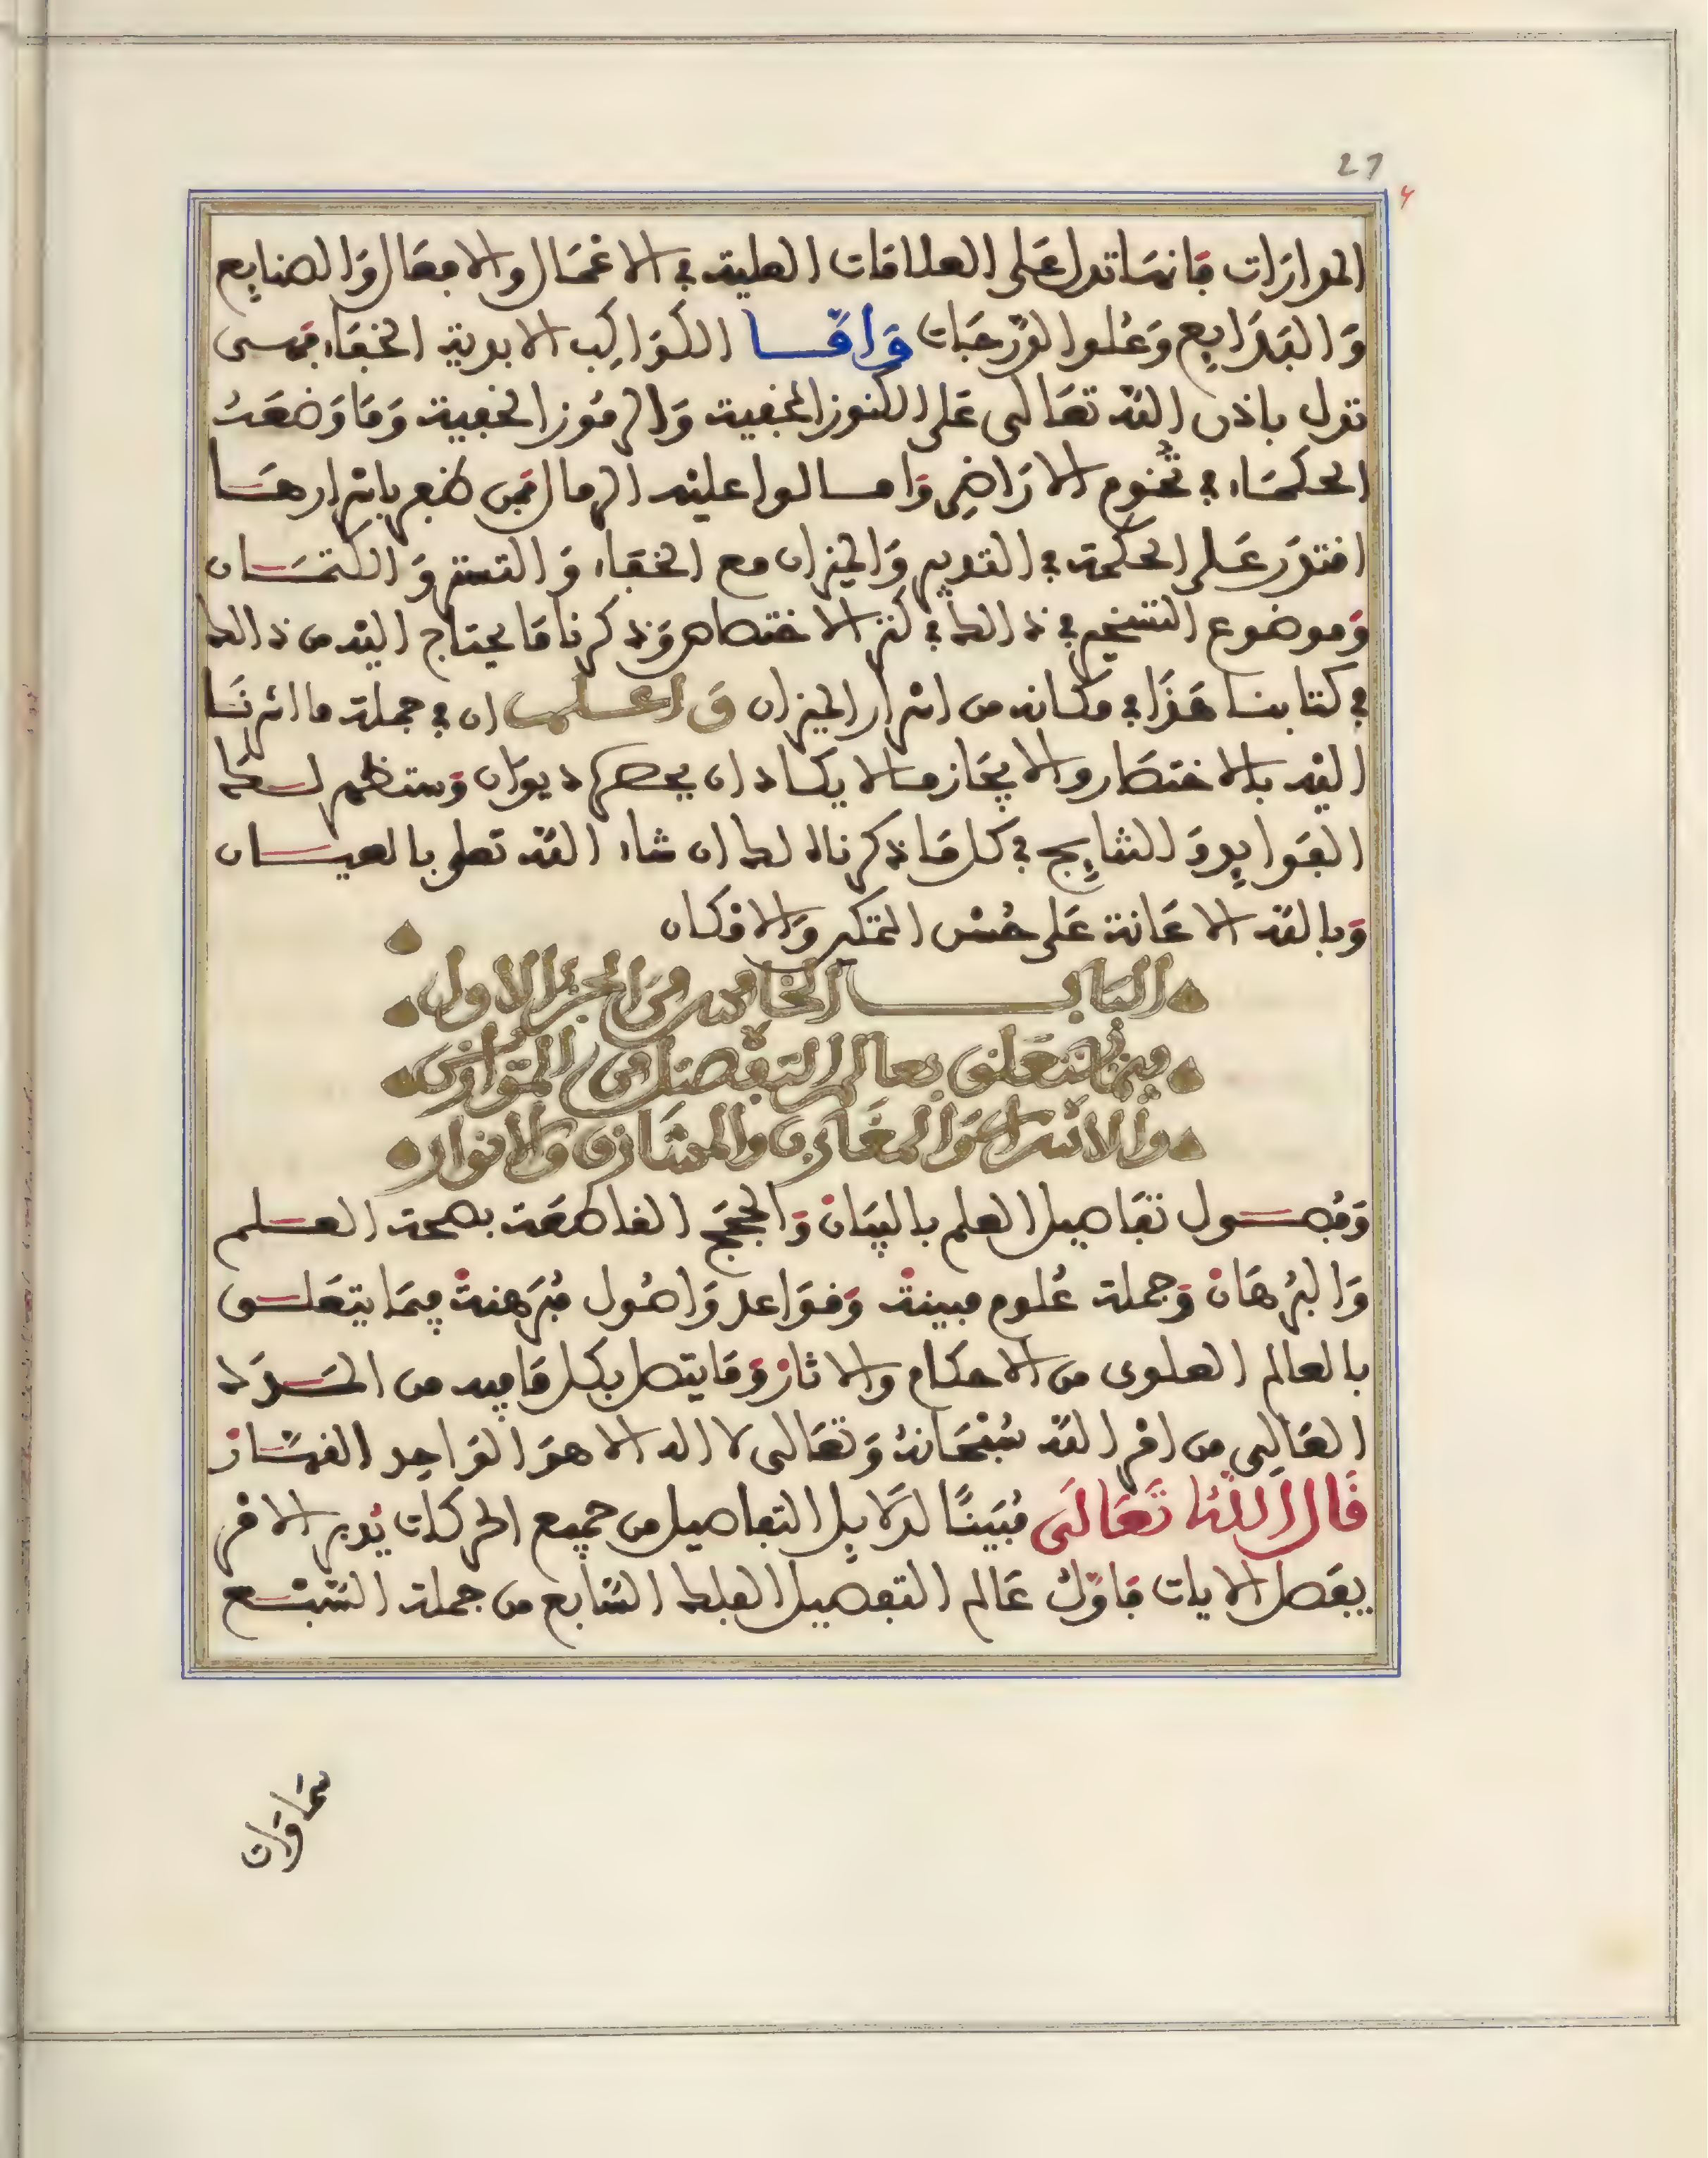 27
المدارات فإنها تدل على العلاقات العلية في الاعمال والافعال والصنايع
والبدايع وعلوا الدرجات واما الكواكب الابدية الخفاء فهى
تدل باذن الله تعالى على الكنوز المخفية والرموز الخفية وما وضعت
الحكماء في تخوم الاراضي وامالوا عليه الرمال فمن ظفر باسرارها
اقتدر على الحكمة في التدبير والميزان مع الخفاء والتستر والكتمان
وموضوع التسخير في ذالك في كنز الاختصاص وذكرنا ما يحتاج اليه من ذالك
في كتابنا هذا في مكانه من اسرار الميزان واعلم ان في جملة ما اشرنا
اليه بالاختصار والايجاز ما لا يكاد ان يحصره ديوان وستظهر لك
الفوايد والنتايج في كل ما ذكرناه لك ان شاء الله تعلى بالعيان
وبالله الاعانة على حسن التمكير والامكان
الباب الخامس من الجزء الاول
فيما يتعلق بعالم التفصيل من الموازين
والاسرار والمغارب والمشارق والانوار
وفصول تفاصيل العلم بالبيان والحجج القاطعة بصحة العلم
والبرهان وجملة علوم مبينة وقواعد واصول مبرهنة فيما يتعلق
بالعالم العلوى من الاحكام والاثار وما يتصل بكل ما فيه من المدد
العالي من امر الله سبحانه وتعالى لا اله الا هو الواحد القهار
قال الله تعالى مبينا لدلايل التفاصيل من جميع الحركات يدبر الامر
يفصل الايات فاول عالم التفصيل الفلك السابع من جملة السبع
سماوات